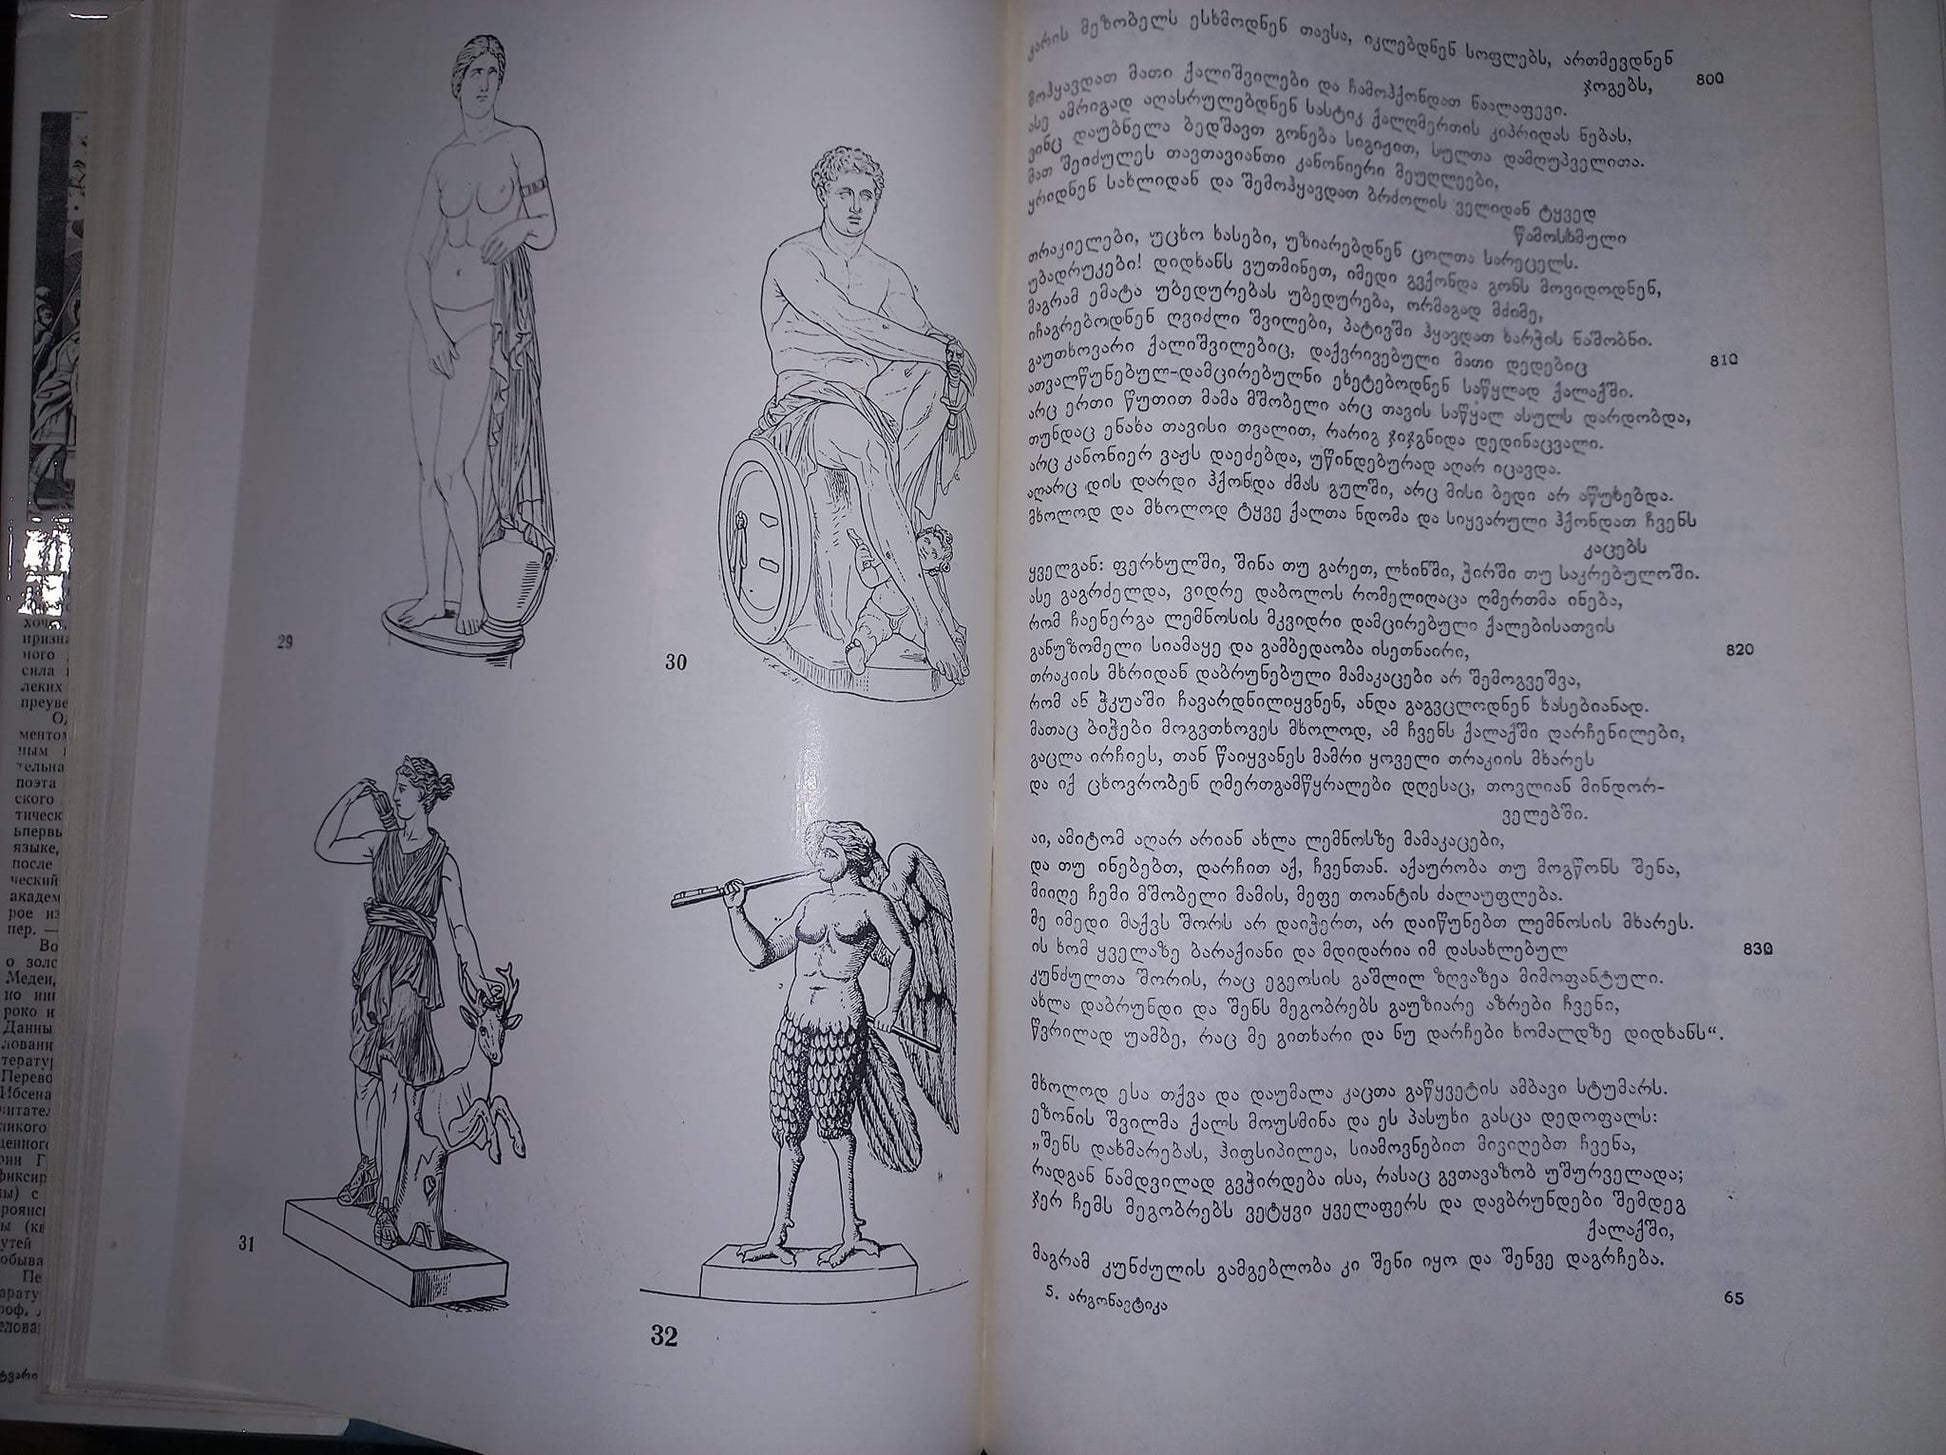 хоч
призна
ного
сила
леких
преуве
ментом
ным
тельна
поэта
ского
тическ
впервь
языке,
после
ческий
академ
рое из
пер. —
Во
о золо
Медеи,
но ини
роко и
Данны
29
30
31
32
კარის მეზობელს ესხმოდნენ თავსა, იკლებდნენ სოფლებს, ართმევდნენ
ჯოგებს, 800
მოჰყავდათ მათი ქალიშვილები და ჩამოჰქონდათ ნაალაფევი.
ასე ამრიგად აღასრულებდნენ სასტიკ ქალღმერთის კიპრიდას ნებას,
ვინც დაუბნელა ბედშავთ გონება სიგიჟით, სულთა დამღუპველითა.
მათ შეიძულეს თავთავიანთი კანონიერი მეუღლეები,
ყრიდნენ სახლიდან და შემოჰყავდათ ბრძოლის ველიდან ტყვედ
წამოსხმული
თრაკიელები, უცხო ხასები, უზიარებდნენ ცოლთა სარეცელს.
უბადრუკები! დიდხანს ვუთმინეთ, იმედი გვქონდა გონს მოვიდოდნენ,
მაგრამ ემატა უბედურებას უბედურება, ორმაგად მძიმე,
იჩაგრებოდნენ ღვიძლი შვილები, პატივში ჰყავდათ ხარჭის ნაშობნი.
გაუთხოვარი ქალიშვილებიც, დაქვრივებული მათი დედებიც 810
ათვალწუნებულ-დამცირებულნი ეხეტებოდნენ საწყლად ქალაქში.
არც ერთი წუთით მამა მშობელი არც თავის საწყალ ასულს დარდობდა,
თუნდაც ენახა თავისი თვალით, რარიგ ჯიჯგნიდა დედინაცვალი.
არც კანონიერ ვაჟს დაეძებდა, უწინდებურად აღარ იცავდა.
აღარც დის დარდი ჰქონდა ძმას გულში, არც მისი ბედი არ აწუხებდა.
მხოლოდ და მხოლოდ ტყვე ქალთა ნდომა და სიყვარული ჰქონდათ ჩვენს
კაცებს
ყველგან: ფერხულში, შინა თუ გარეთ, ლხინში, ჭირში თუ საკრებულოში.
ასე გაგრძელდა, ვიდრე დაბოლოს რომელიღაცა ღმერთმა ინება,
რომ ჩაენერგა ლემნოსის მკვიდრი დამცირებული ქალებისათვის
განუზომელი სიამაყე და გამბედაობა ისეთნაირი, 820
თრაკიის მხრიდან დაბრუნებული მამაკაცები არ შემოგვეშვა,
რომ ან ჭკუაში ჩავარდნილიყვნენ, ანდა გაგვცლოდნენ ხასებიანად.
მათაც ბიჭები მოგვთხოვეს მხოლოდ, ამ ჩვენს ქალაქში დარჩენილები,
გაცლა ირჩიეს, თან წაიყვანეს მამრი ყოველი თრაკიის მხარეს
და იქ ცხოვრობენ ღმერთგამწყრალები დღესაც, თოვლიან მინდორ-
ველებში.
აი, ამიტომ აღარ არიან ახლა ლემნოსზე მამაკაცები,
და თუ ინებებთ, დარჩით აქ, ჩვენთან. აქაურობა თუ მოგწონს შენა,
მიიღე ჩემი მშობელი მამის, მეფე თოანტის ძალაუფლება.
მე იმედი მაქვს შორს არ დაიჭერთ, არ დაიწუნებთ ლემნოსის მხარეს.
ის ხომ ყველაზე ბარაქიანი და მდიდარია იმ დასახლებულ 830
კუნძულთა შორის, რაც ეგეოსის გაშლილ ზღვაზეა მიმოფანტული.
ახლა დაბრუნდი და შენს მეგობრებს გაუზიარე აზრები ჩვენი,
წვრილად უამბე, რაც მე გითხარი და ნუ დარჩები ხომალდზე დიდხანს“.
მხოლოდ ესა თქვა და დაუმალა კაცთა გაწყვეტის ამბავი სტუმარს.
ეზონის შვილმა ქალს მოუსმინა და ეს პასუხი გასცა დედოფალს:
„შენს დახმარებას, ჰიფსიპილეა, სიამოვნებით მივიღებთ ჩვენა,
რადგან ნამდვილად გვჭირდება ისა, რასაც გვთავაზობ უშურველადა;
ჯერ ჩემს მეგობრებს ვეტყვი ყველაფერს და დავბრუნდები შემდეგ
ქალაქში,
მაგრამ კუნძულის გამგებლობა კი შენი იყო და შენვე დაგრჩება.
5. არგონავტიკა 65